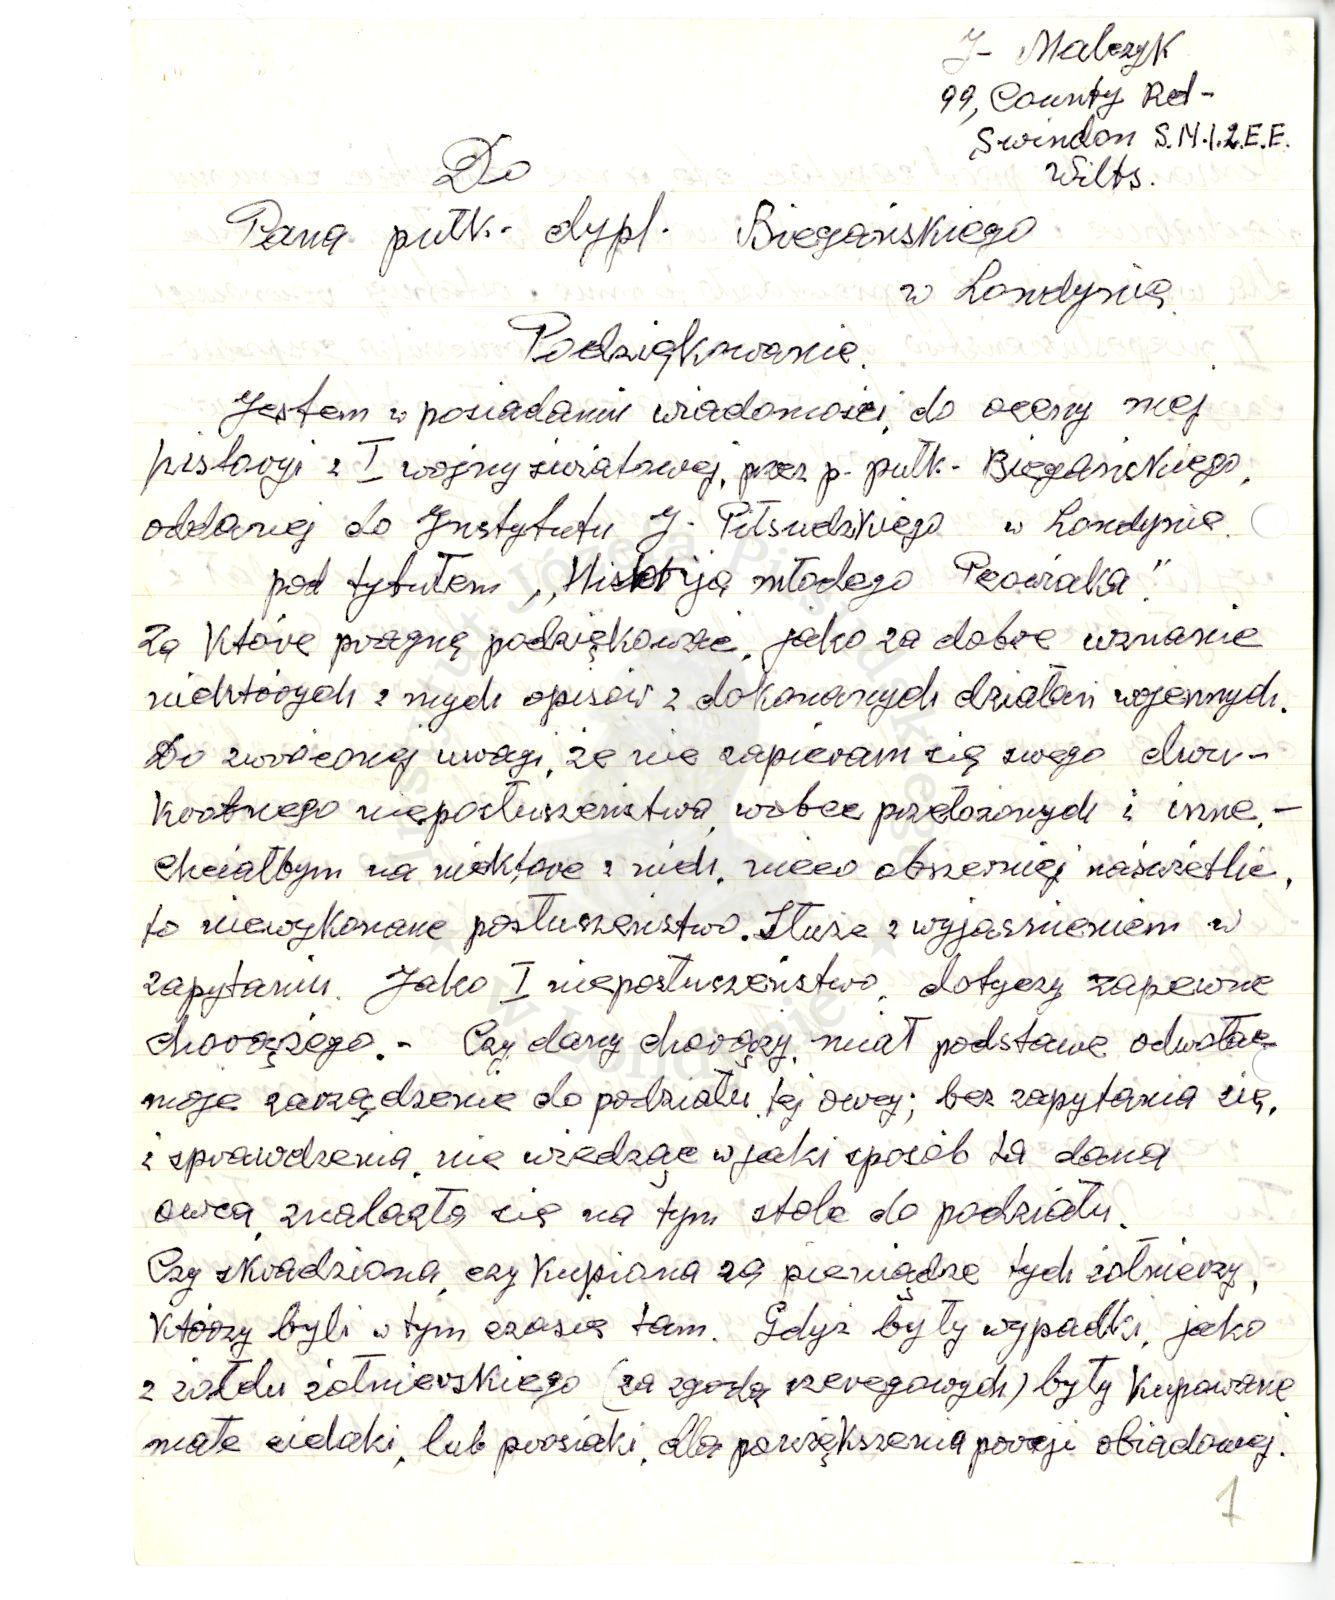 J- Malczyk
99, County Rd-
Swindon S.N.1.2.E.E.
Wilts.
Do
Pana pułk.- dypl. Biegańskiego
w Londynie
Podziękowanie.
Jestem w posiadaniu wiadomości, do oceny mej
historyi z I wojny światowej, przez p. pułk- Biegańskiego,
oddanej do Instytutu J- Piłsudzkiego w Londynie.
pod tytułem „Historija młodego Peowiaka"
Za które pragnę podziękować, jako za dobre uznanie
niektórych z mych opisów z dokonanych działań wojennych.
Do zwróconej uwagi, że nie zapieram się swego dwu-
krotnego nieposłuszeństwa, wobec przełożonych i inne.-
chciałbym na niektóre z nich, nieco obszerniej naświetlić,
to niewykonane posłuszeństwo. Służe z wyjaśnieniem w
zapytaniu. Jako I nieposłuszeństwo, dotyczy zapewne
chorążego.- Czy dany chorąży, miał podstawę odwołać
moje zarządzenie do podziału tej owcy; bez zapytania się,
i sprawdzenia, nie wiedząc w jaki sposób ta dana
owca, znalazła się na tym stole do podziału.
Czy skradziona, czy kupiona za pieniądze tych żołnierzy,
którzy byli w tym czasie tam. Gdyż były wypadki, jako
z żołdu żołnierskiego (za zgodą szeregowych) były kupowane
małe cielaki, lub prosiaki, dla powiększenia porcji obiadowej.
1
Instytut Józefa Piłsudskiego
w Londynie